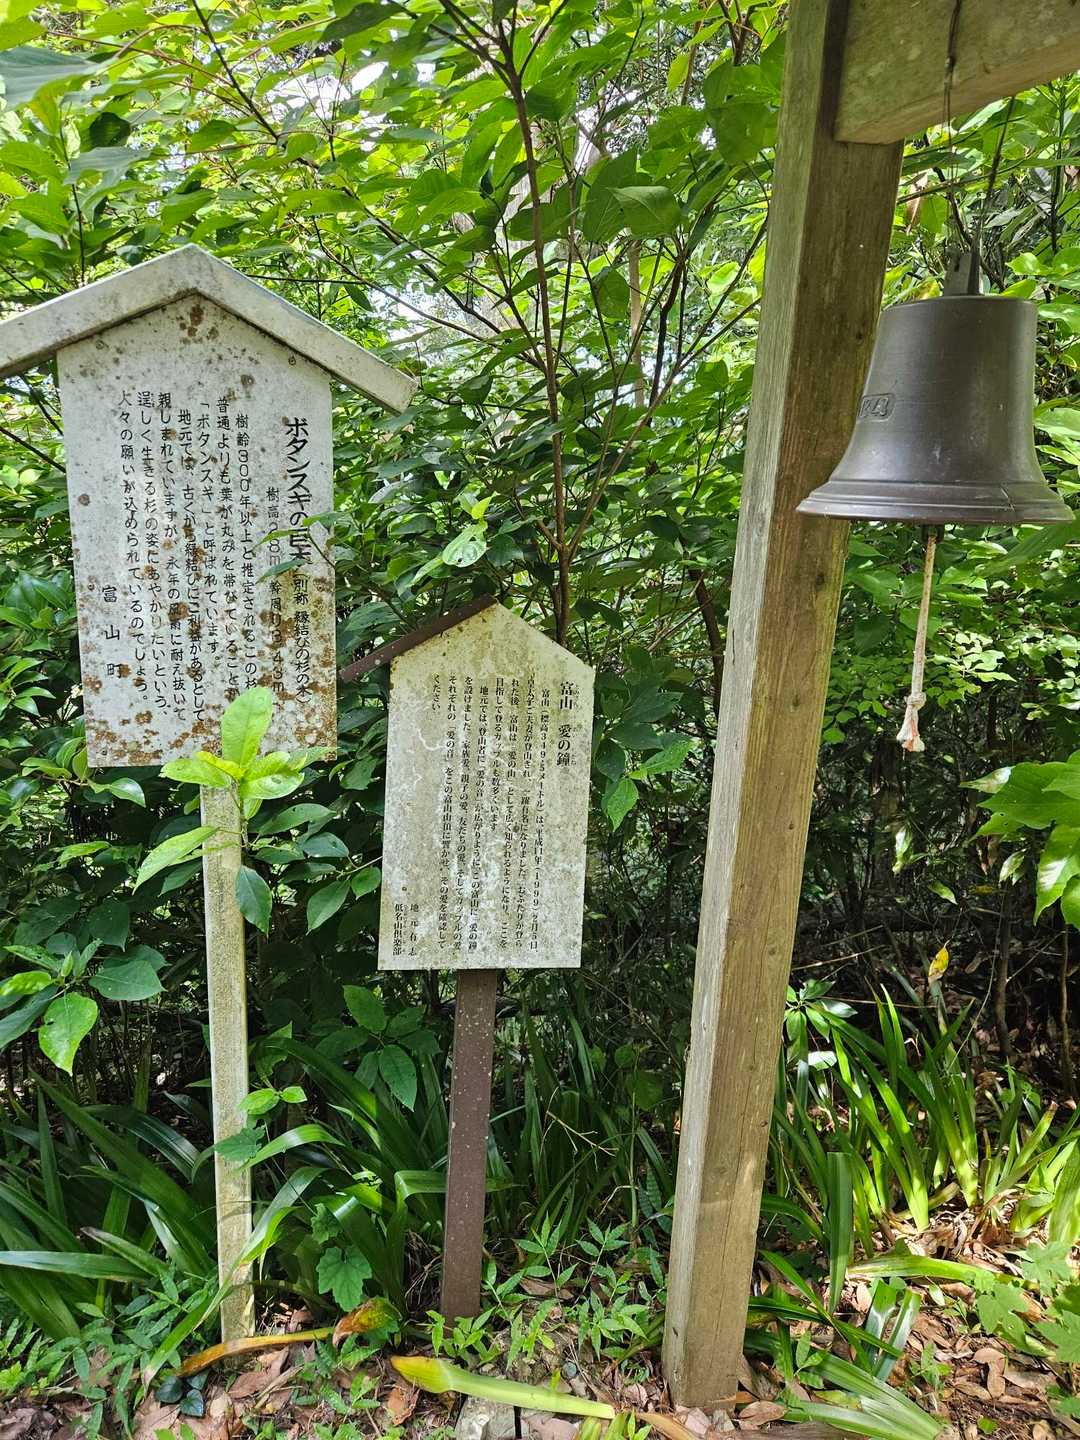 ボタンスギの巨木(別称 縁結びの杉の木)
樹高28m 幹周り3.43m
樹齢300年以上と推定されるこの杉
普通よりも葉が丸みを帯びていることか
「ボタンスギ」と呼ばれています。
地元では、古くから縁結びにご利益があるとして
親しまれていますが、永年の風雨に耐え抜いて
逞しく生きる杉の姿にあやかりたいという、
人々の願いが込められているのでしょう。
富山町
富山 愛の鐘
富山(標高349.5メートル)は、平成11年(1999)2月5日
皇太子ご夫妻が登山され、一躍有名になりました。おふたりが登ら
れた後、富山は「愛の山」として広く知られるようになり、ここを
目指して登るカップルも数多くいます
地元では、登山者に「愛の音」が広がりますようにこの富山に「愛の鐘」
を設けました。家族愛、親子の愛、友だちの愛、そしてカップルの愛
それぞれの「愛の音」をこの富山山頂に響かせ、その愛を確認して
ください。
地元有志
低名山倶楽部